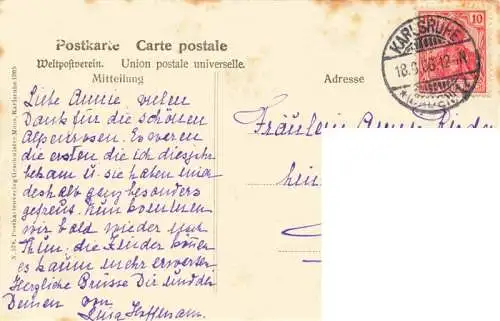 Postkarte Carte postale
Weltpostverein. Union postale universelle.
Mitteilung
Adresse
10
KARLSRUHE
18.9.
12-
Liebe Annie, vielen
Dank für die schönen
Alpenrosen. Es waren
die ersten die ich diesjahr
bekam u. sie haben mich
deshalb ganz besonders
gefreut. Nun kommen
wir bald wieder nach
die Kinder können
es kaum mehr erwarten
Herzliche Grüsse Dir und den
Deinen von
Hoffmann.
Fräulein